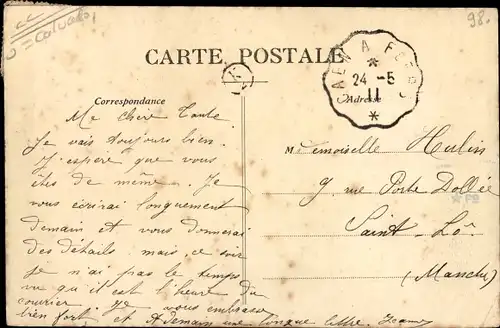 = Calvados
98.
CARTE POSTALE
CAEN A F
24 -5
11
Correspondance
Adresse
Ma chère Tante
Je vais toujours bien.
J'espère que vous
êtes de même. Je
vous écrirai longuement
demain et vous donnerai
des détails mais, ce soir
je n'ai pas le temps
vu qu'il est l'heure du
courier je vous embrasse
bien fort et à demain une longue lettre.
Mademoiselle Hulin
9, rue Porte Dollée
Saint-Lô
(Manche)